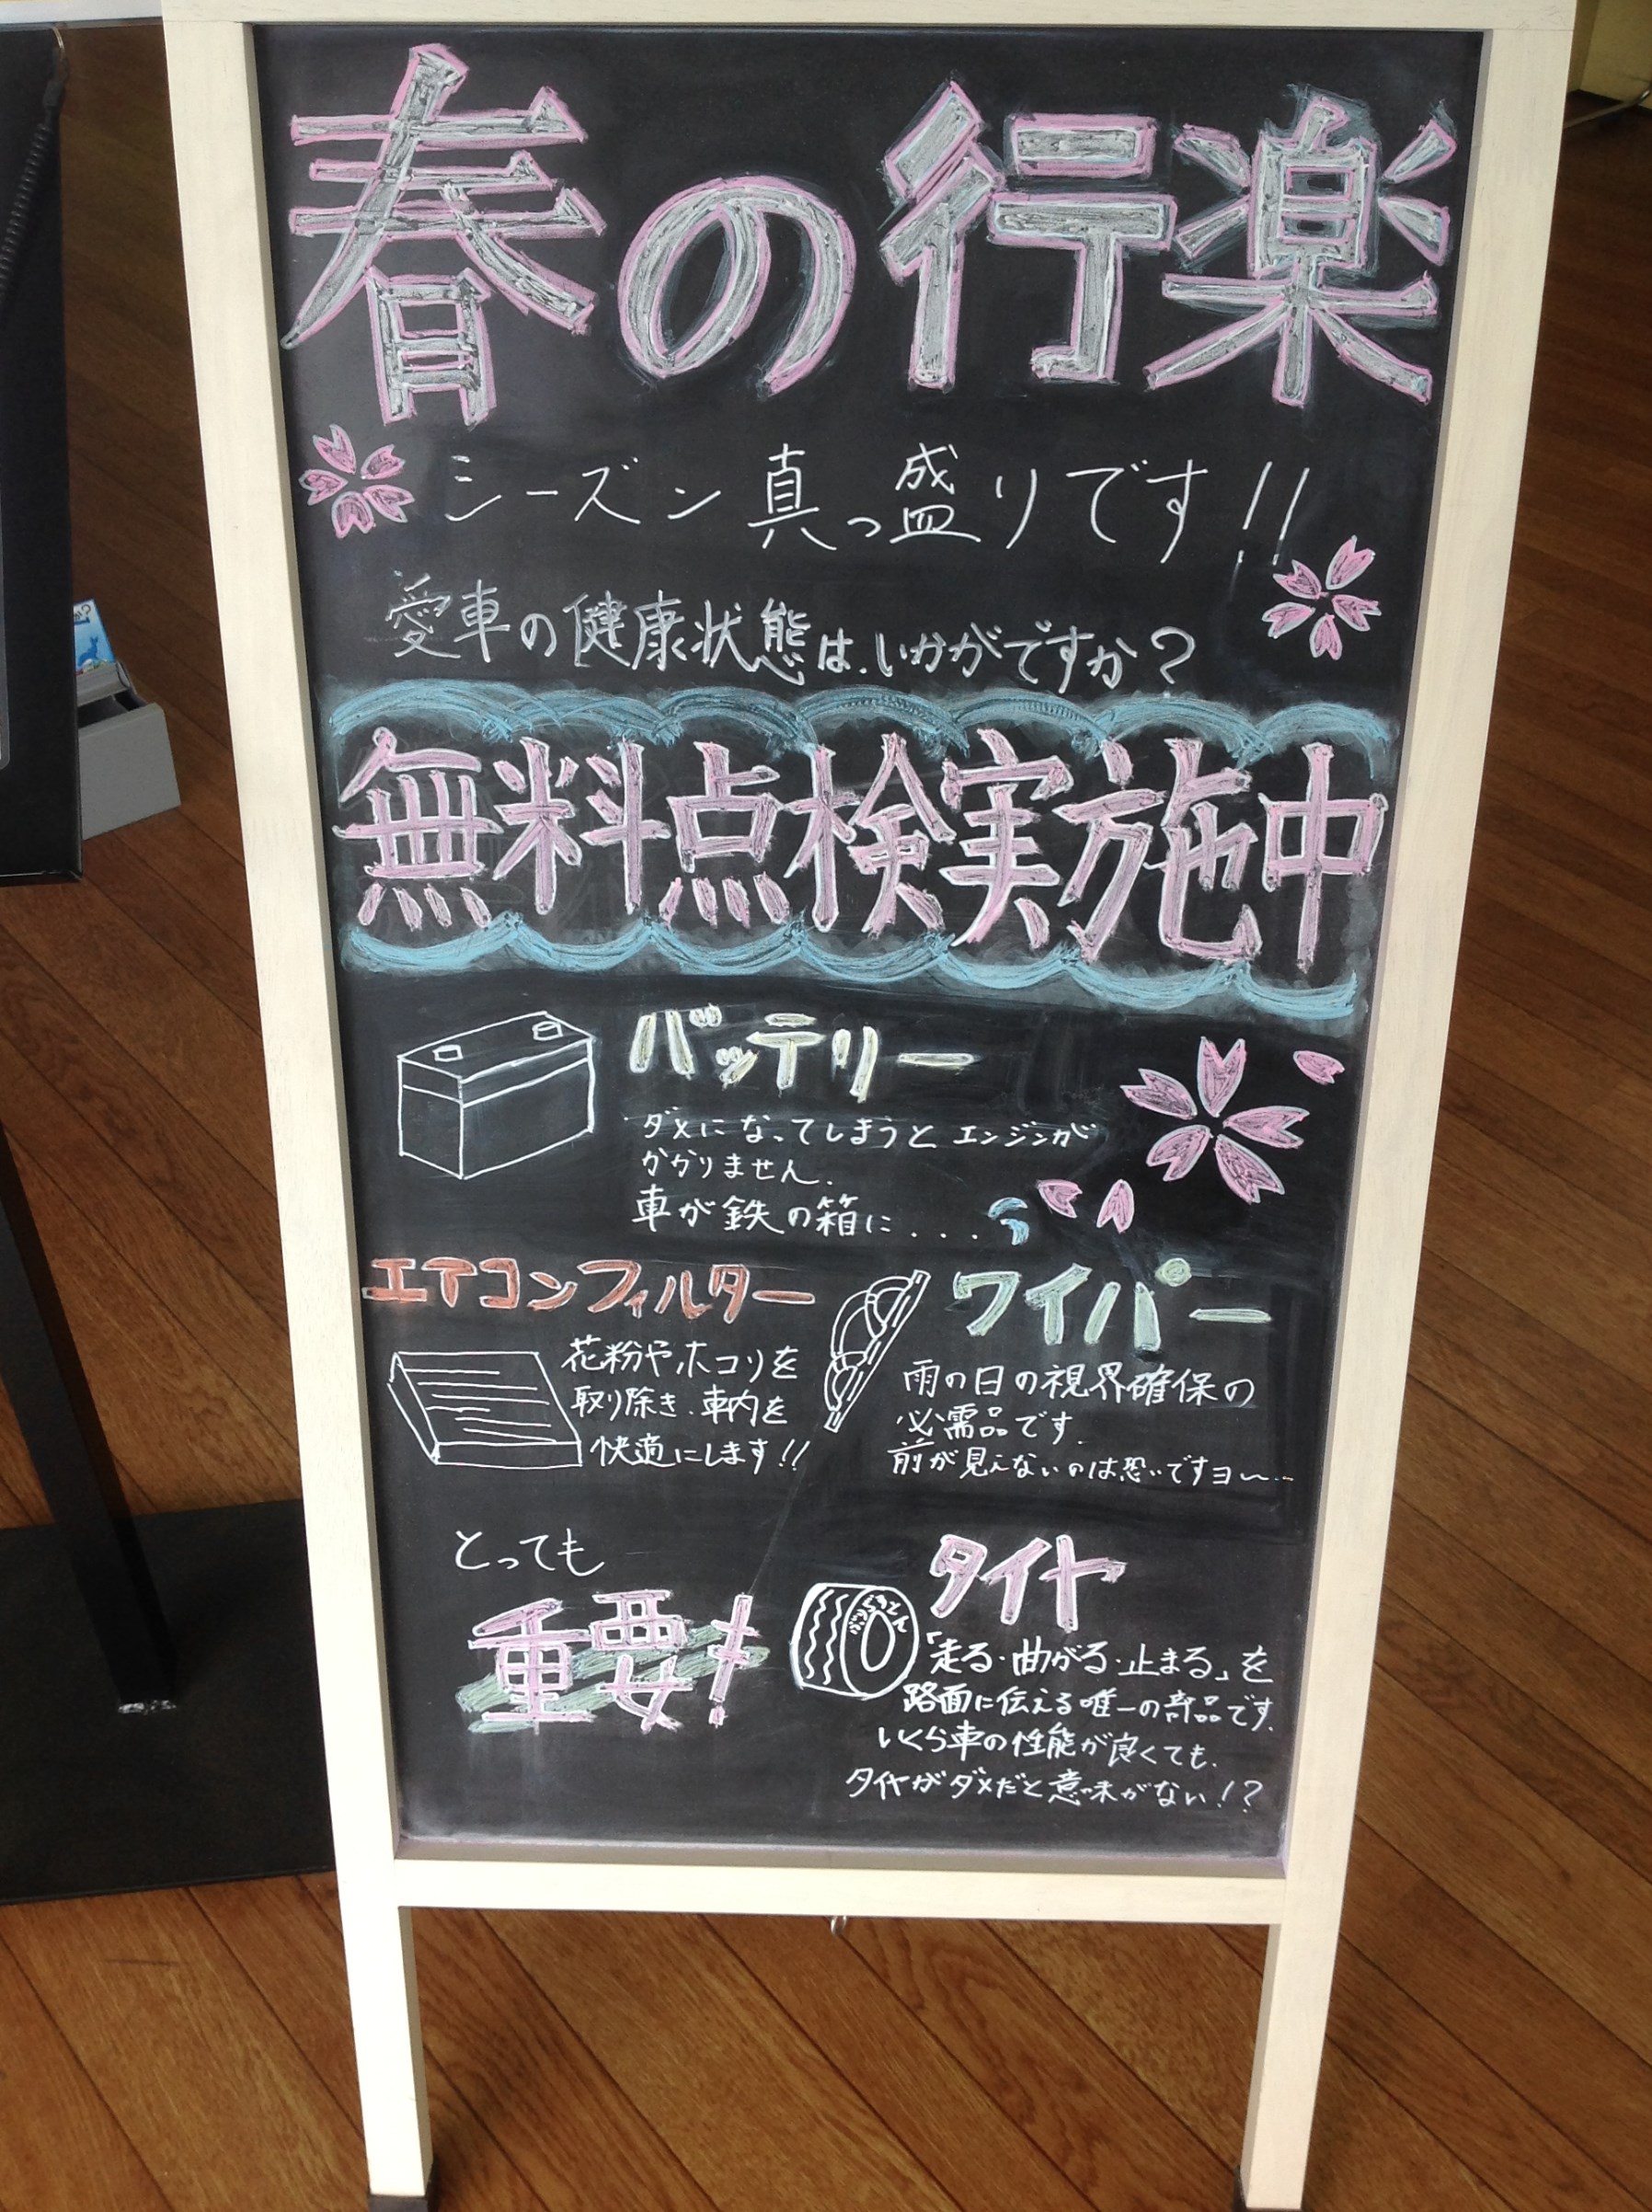 春の行楽
シーズン真っ盛りです!!
愛車の健康状態は、いかがですか?
無料点検実施中
バッテリー
ダメになってしまうとエンジンが
かかりません。
車が鉄の箱に....
エアコンフィルター
花粉やホコリを
取り除き、車内を
快適にします!!
ワイパー
雨の日の視界確保の
必需品です。
前が見えないのは恐いですヨ〜...
とっても
重要!
タイヤ
「走る・曲がる・止まる」を
路面に伝える唯一の部品です。
いくら車の性能が良くても、
タイヤがダメだと意味がない!?